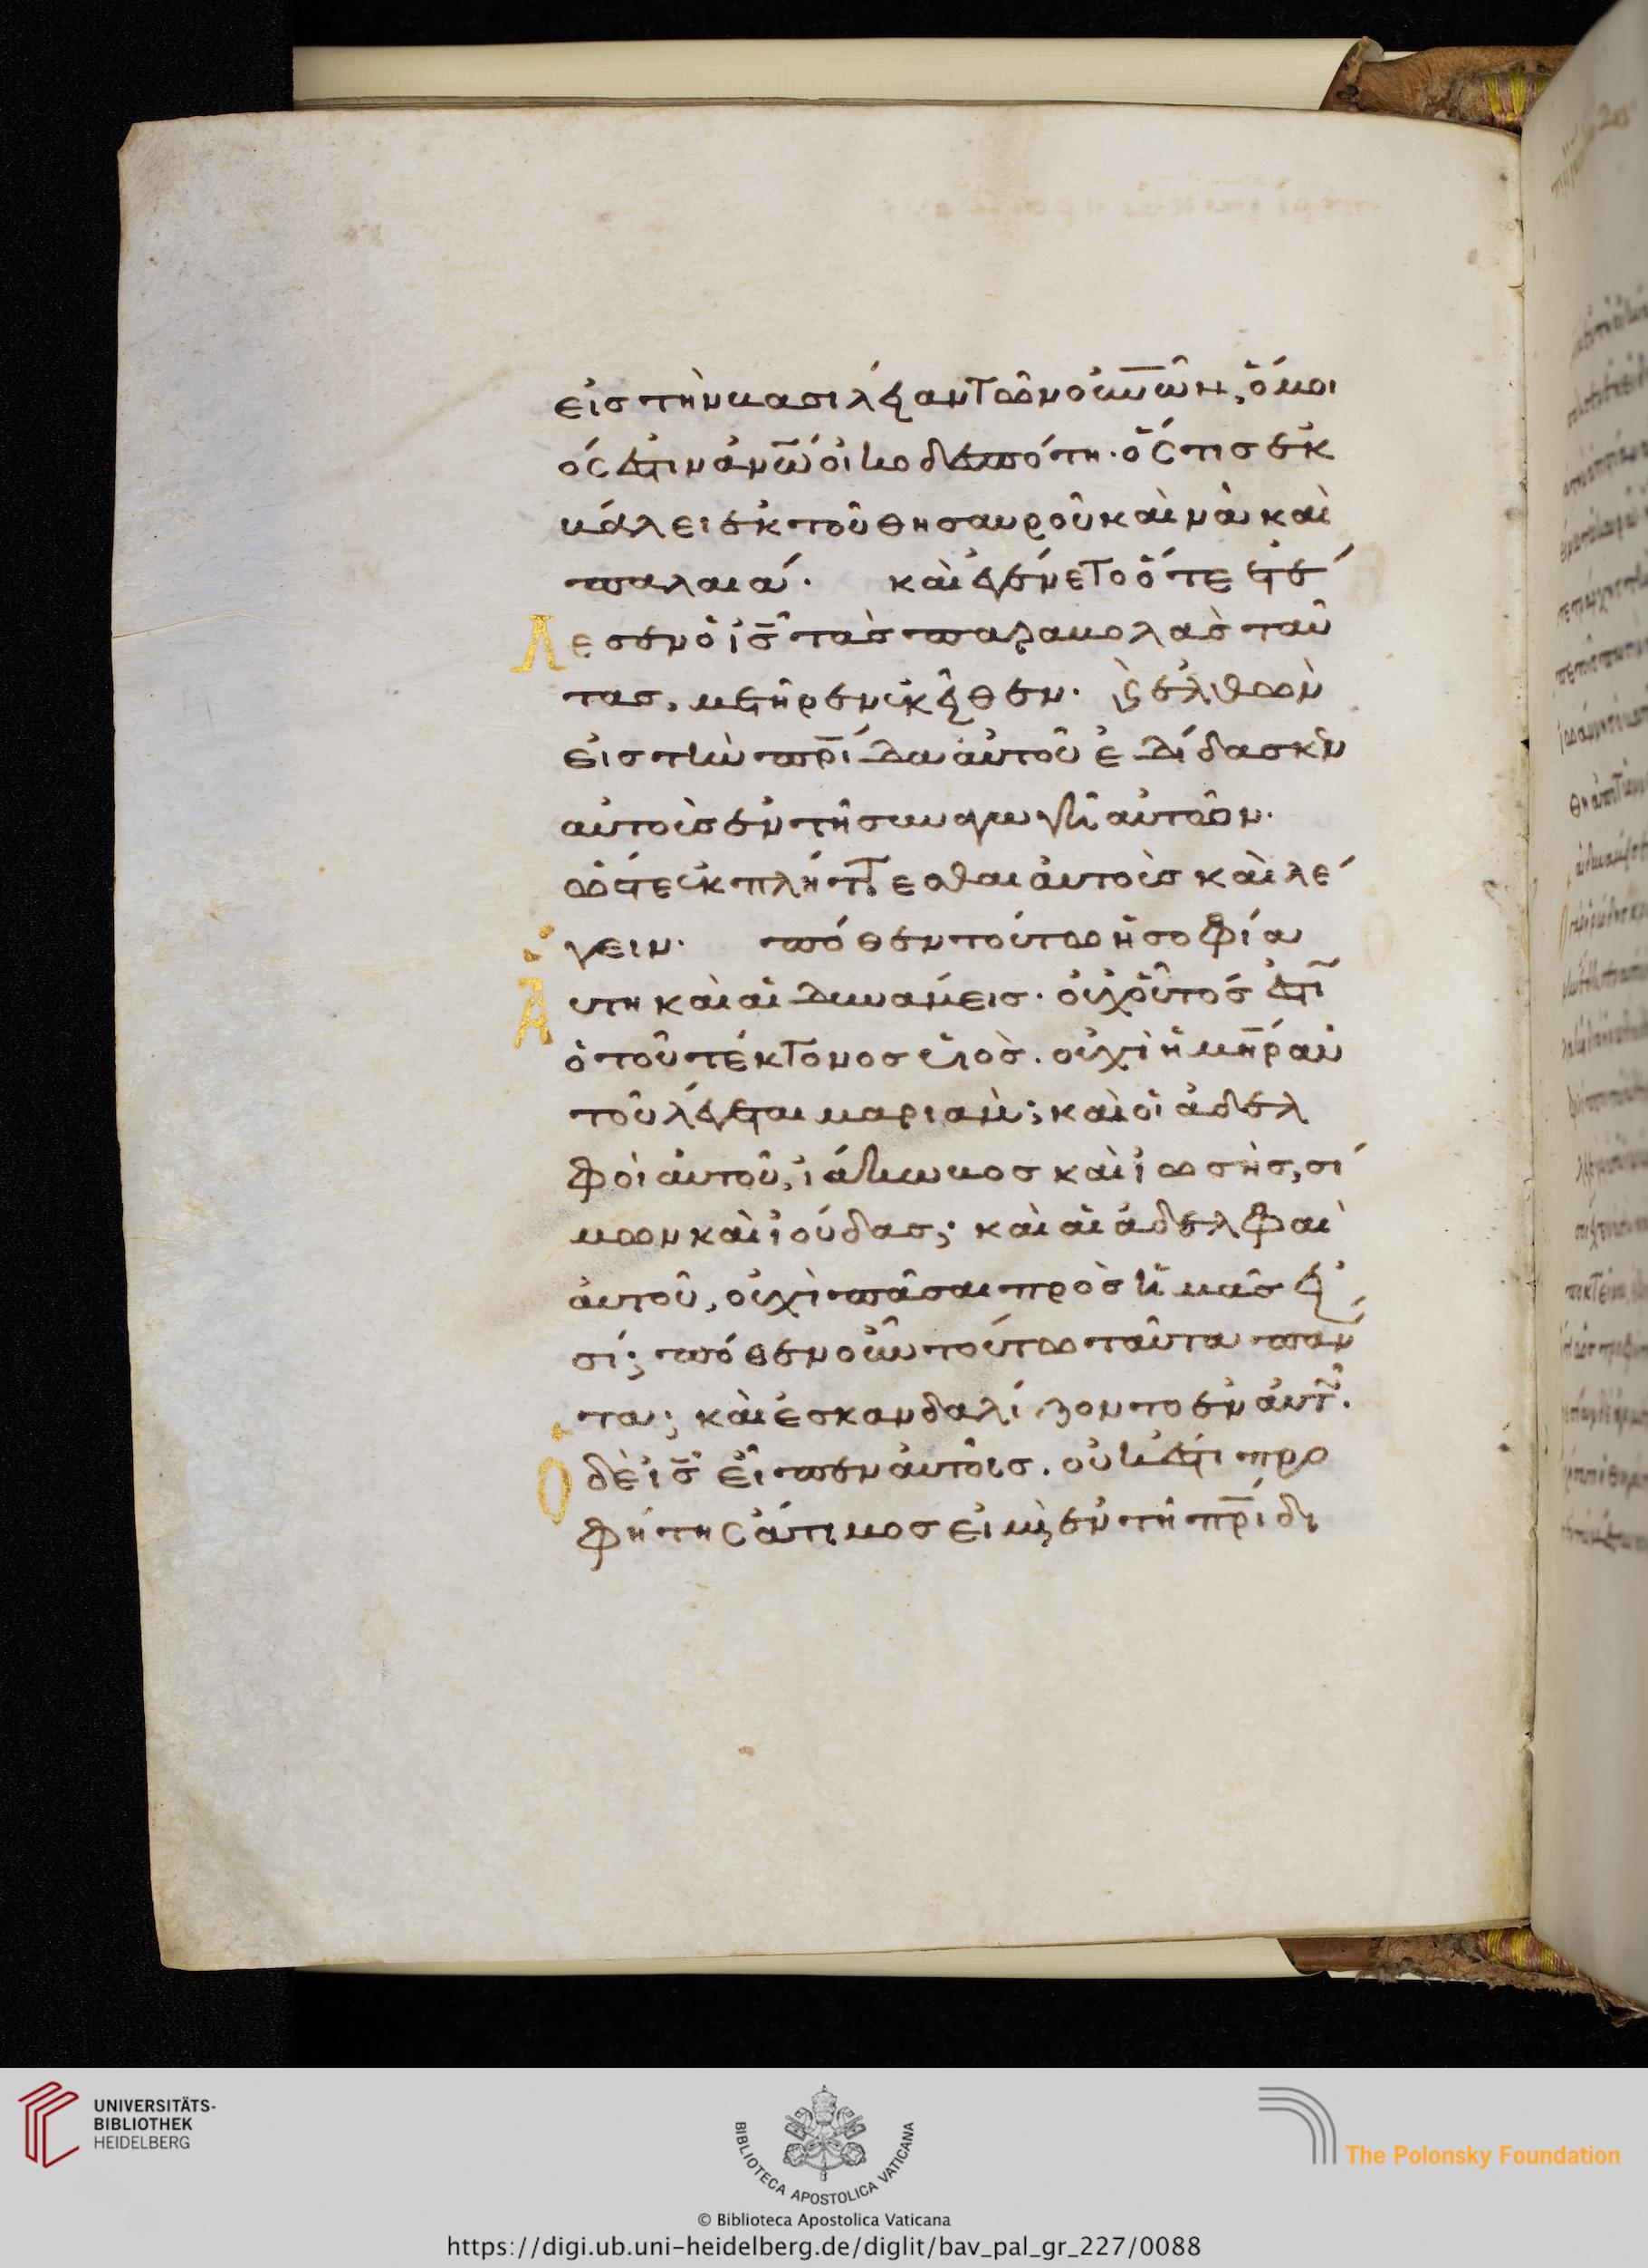 εἰς τὴν βασιλείαν τῶν οὐν̅ῶν, ὅμοι
ός ἐστιν ἀνω̅ οἰκοδεσπότη· ὅστις ἐκ
βάλει ἐκ τοῦ θησαυροῦ καινὰ καὶ
παλαιά· καὶ ἐγένετο ὅτε ἐτέ
Λεσεν ὁ ἰς̅ τὰς παραβολὰς ταύ
τας, μετῆρεν ἐκεῖθεν· καὶ ἐλθὼν
εἰς τὴν πρ̅ίδα αὐτοῦ ἐδίδασκεν
αὐτοὺς ἐν τῆ συναγωγῆ αὐτῶν·
ὥστε ἐκπλήττεσθαι αὐτοὺς καὶ λέ
γειν· πόθεν τούτω ἡ σοφία
Αὕτη καὶ αἱ δυνάμεις· οὐχ οὗτός ἐστιν
ὁ τοῦ τέκτονος υἱὸς. οὐχὶ ἡ μη̅ρ αὐ
τοῦ λέγεται μαριάμ; καὶ οἱ ἀδελ
φοὶ αὐτοῦ, ἰάκωβος καὶ ἰωσὴς, σί
μων καὶ ἰούδας; καὶ αἱ ἀδελφαὶ
αὐτοῦ, οὐχὶ πᾶσαι πρὸς ἡμᾶς εἰ
σί; πόθεν οὖν τούτω ταῦτα πάν
τα; καὶ ἐσκανδαλίζοντο ἐν αὐτῶ.
Ὁ δὲ ἰς̅ εἶπεν αὐτοῖς. οὐκ ἔστι προ
φήτης ἄτιμος εἰ μὴ ἐν τῆ πρ̅ίδι
UNIVERSITÄTS-
BIBLIOTHEK
HEIDELBERG
BIBLIOTECA APOSTOLICA VATICANA
The Polonsky Foundation
© Biblioteca Apostolica Vaticana
https://digi.ub.uni-heidelberg.de/diglit/bav_pal_gr_227/0088